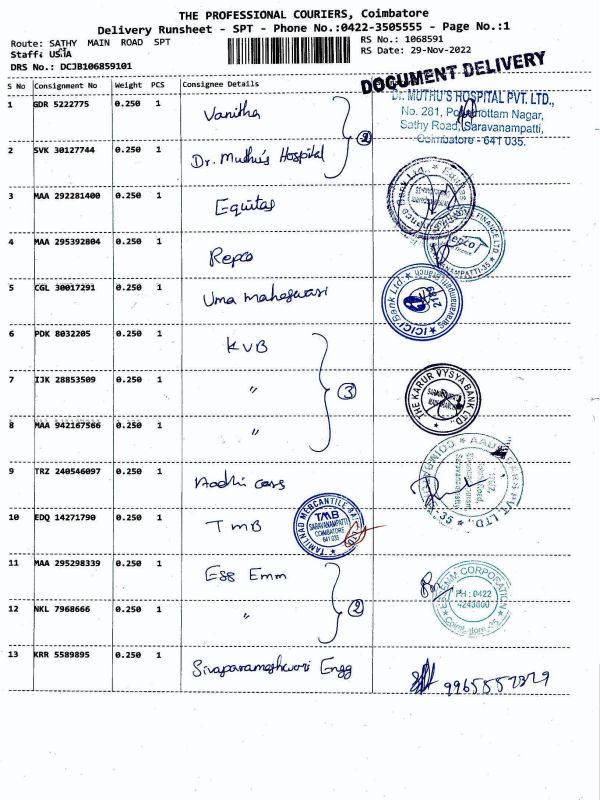 THE PROFESSIONAL COURIERS, Coimbatore
Delivery Runsheet - SPT - Phone No.:0422-3505555 - Page No.:1
Route: SATHY MAIN ROAD SPT
RS No.: 1068591
RS Date: 29-Nov-2022
DRS No.: DCJB106859101
DOCUMENT DELIVERY
S No Consignment No Weight PCS Consignee Details
1 GDR 5222775 0.250 1 Vanitha
Dr. MUTHU'S HOSPITAL PVT. LTD.,
Nagar,
Sathy Road, Saravanampatti,
Coimbatore - 641 035.
2 SVK 30127744 0.250 1 Dr. Muthu's Hospital
2
3 MAA 292281400 0.250 1 Equitas
4 MAA 295392804 0.250 1 Repco
FINANCE LTD
Repco
5 CGL 30017291 0.250 1 Uma maheswari
ICICI Bank Ltd
6 PDK 8032205 0.250 1 KVB
7 IJK 28853509 0.250 1 "
3
THE KARUR VYSYA BANK LTD.,
8 MAA 942167566 0.250 1 "
9 TRZ 240546097 0.250 1 Aadhi cars
10 EDQ 14271790 0.250 1 TMB
TAMILNAD MERCANTILE
TMB
SARAVANAMPATTI
COIMBATORE
641 035
11 MAA 295298339 0.250 1 Ess Emm
EMM CORPORATION
PH : 0422
4243800
Coimbatore-35
12 NKL 7968666 0.250 1 "
2
13 KRR 5589895 0.250 1 Sivaparameshwari Engg